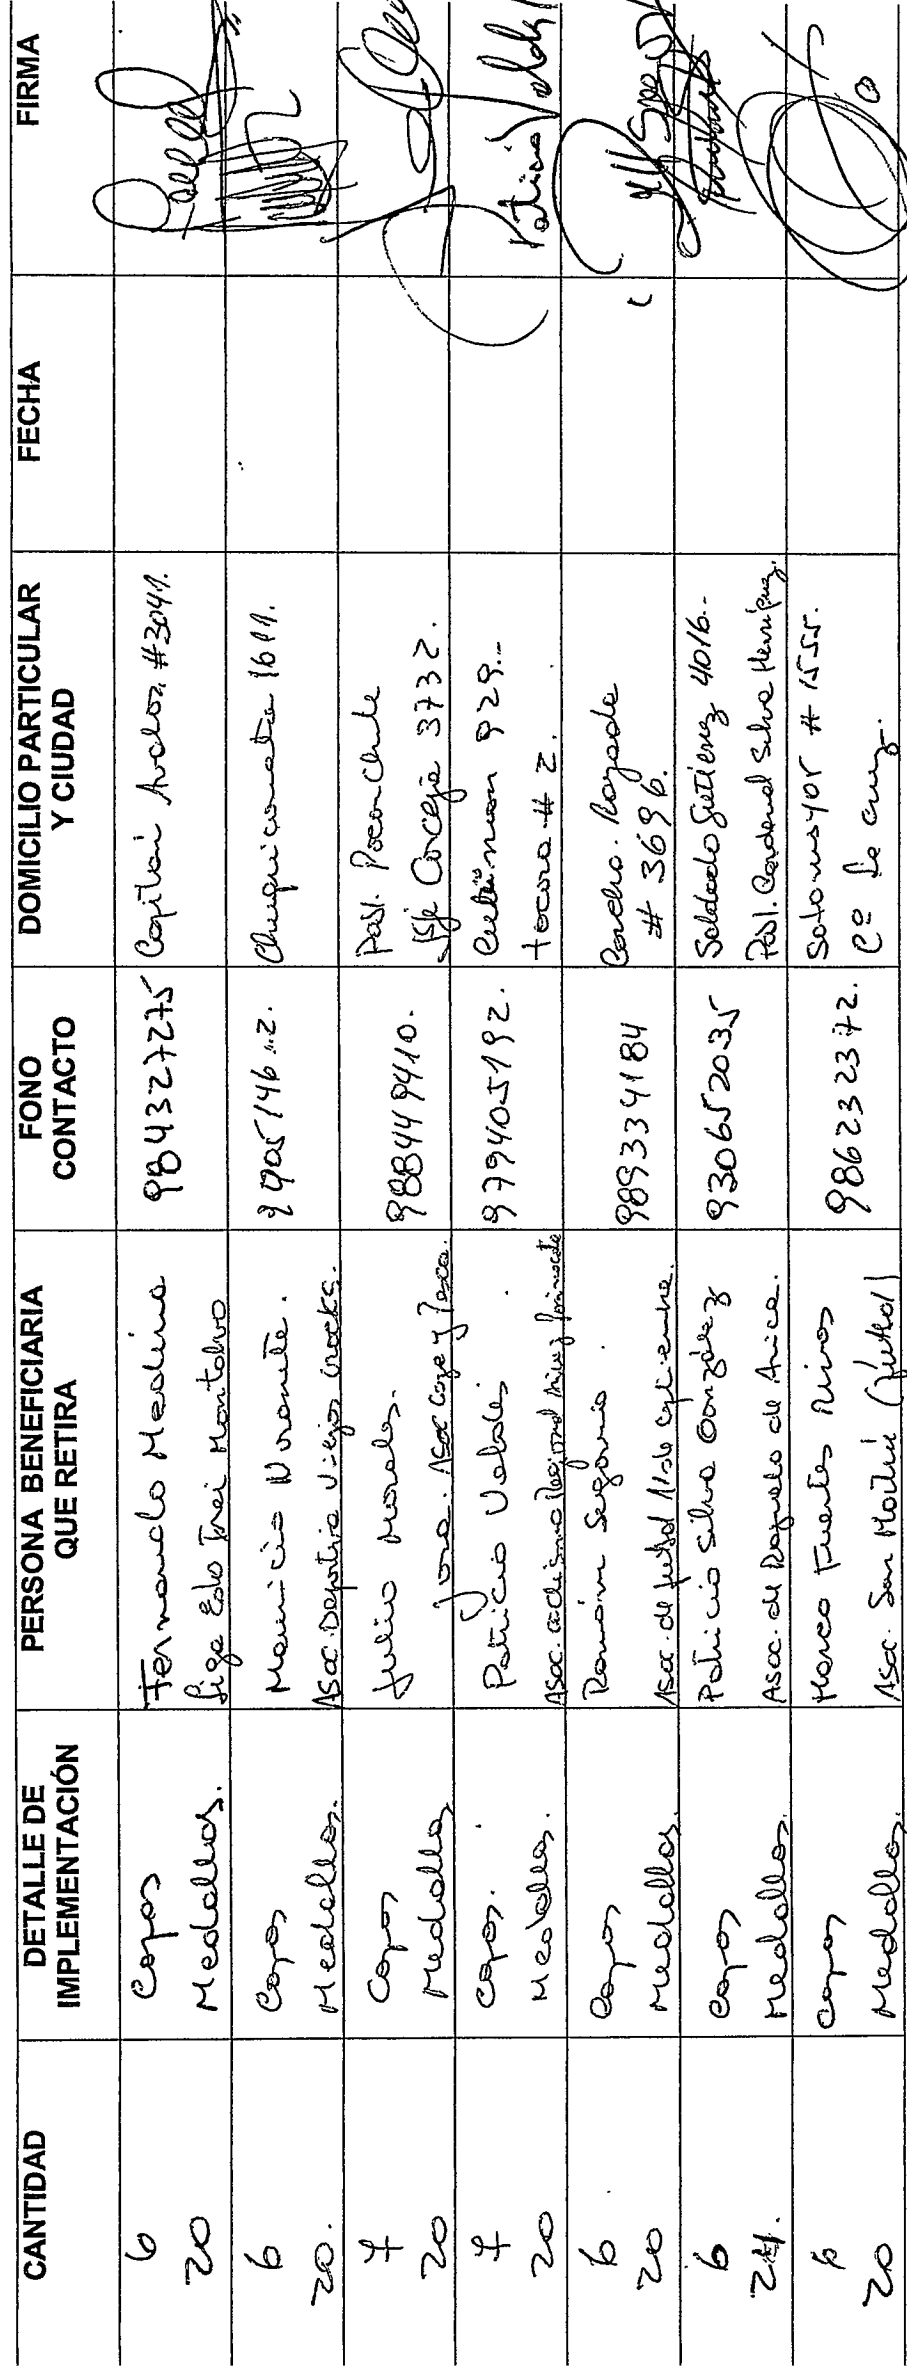 CANTIDAD
DETALLE DE IMPLEMENTACIÓN
PERSONA BENEFICIARIA QUE RETIRA
FONO CONTACTO
DOMICILIO PARTICULAR Y CIUDAD
FECHA
FIRMA
6 Copas
20 Medallas.
Fernando Medina
Liga Edo Frei Montalvo
984327275
Capitán Avalos #3041.
6 Copas
20. Medallas.
Mauricio
Asoc. Deportiva Viejos Cracks.
Chuquicamata 1611.
7 Copas
20 Medallas
Julio Morales.
Asoc Caza y Pesca.
988449410.
Pobl. Poconchile
Psje Concejo 3732.
7 Copas.
20 Medallas.
Patricio Valdés
979405192.
929.-
tacora # 2.
6 Copas
20 Medallas.
Ramón Segovia.
Asoc. de futbol
989334184
Cancha Rayada
# 3696.
6 Copas
Medallas.
Patricio Silva González
Asoc. de Rayuela de Arica.
930652035
Soldado Gutierrez 4016.-
Pobl. Cardenal Silva Henríquez.
6 Copas
20 Medallas.
Marco Fuentes Rivas
Asoc. San Martín (futbol)
986232372.
Sotomayor # 1555.
Cº La Cruz.